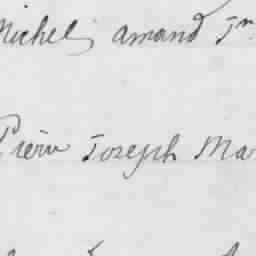 Michel amand Jn
Pierre Joseph Ma